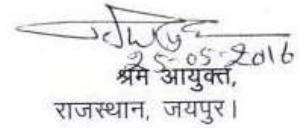 25-05-2016
श्रम आयुक्त,
राजस्थान, जयपुर।